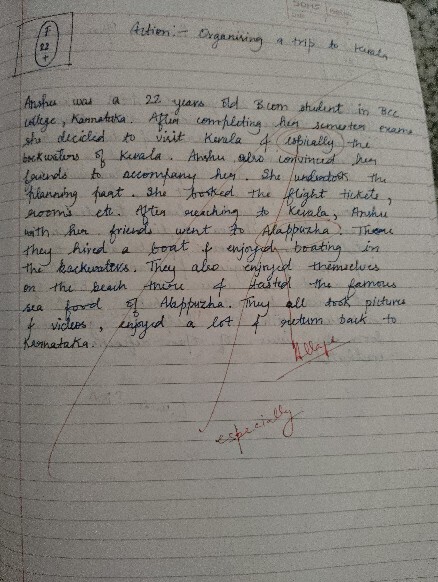 F
22
+
Action:- Organising a trip to Kerala
Anshu was a 22 years old B.com student in Bcc
college, Karnataka. After completing her semester exams
she decided to visit Kerala & espially the
backwaters of Kerala. Anshu also convinced her
friends to accompany her. She undertook the
planning part. She booked the flight tickets,
rooms etc. After reaching to Kerala, Anshu
with her friends went to Alappuzha. There
they hired a boat & enjoyed boating in
the backwaters. They also enjoyed themselves
on the beach there & tasted the famous
sea food of Alappuzha. They all took pictures
& videos, enjoyed a lot & return back to
Karnataka.
especially